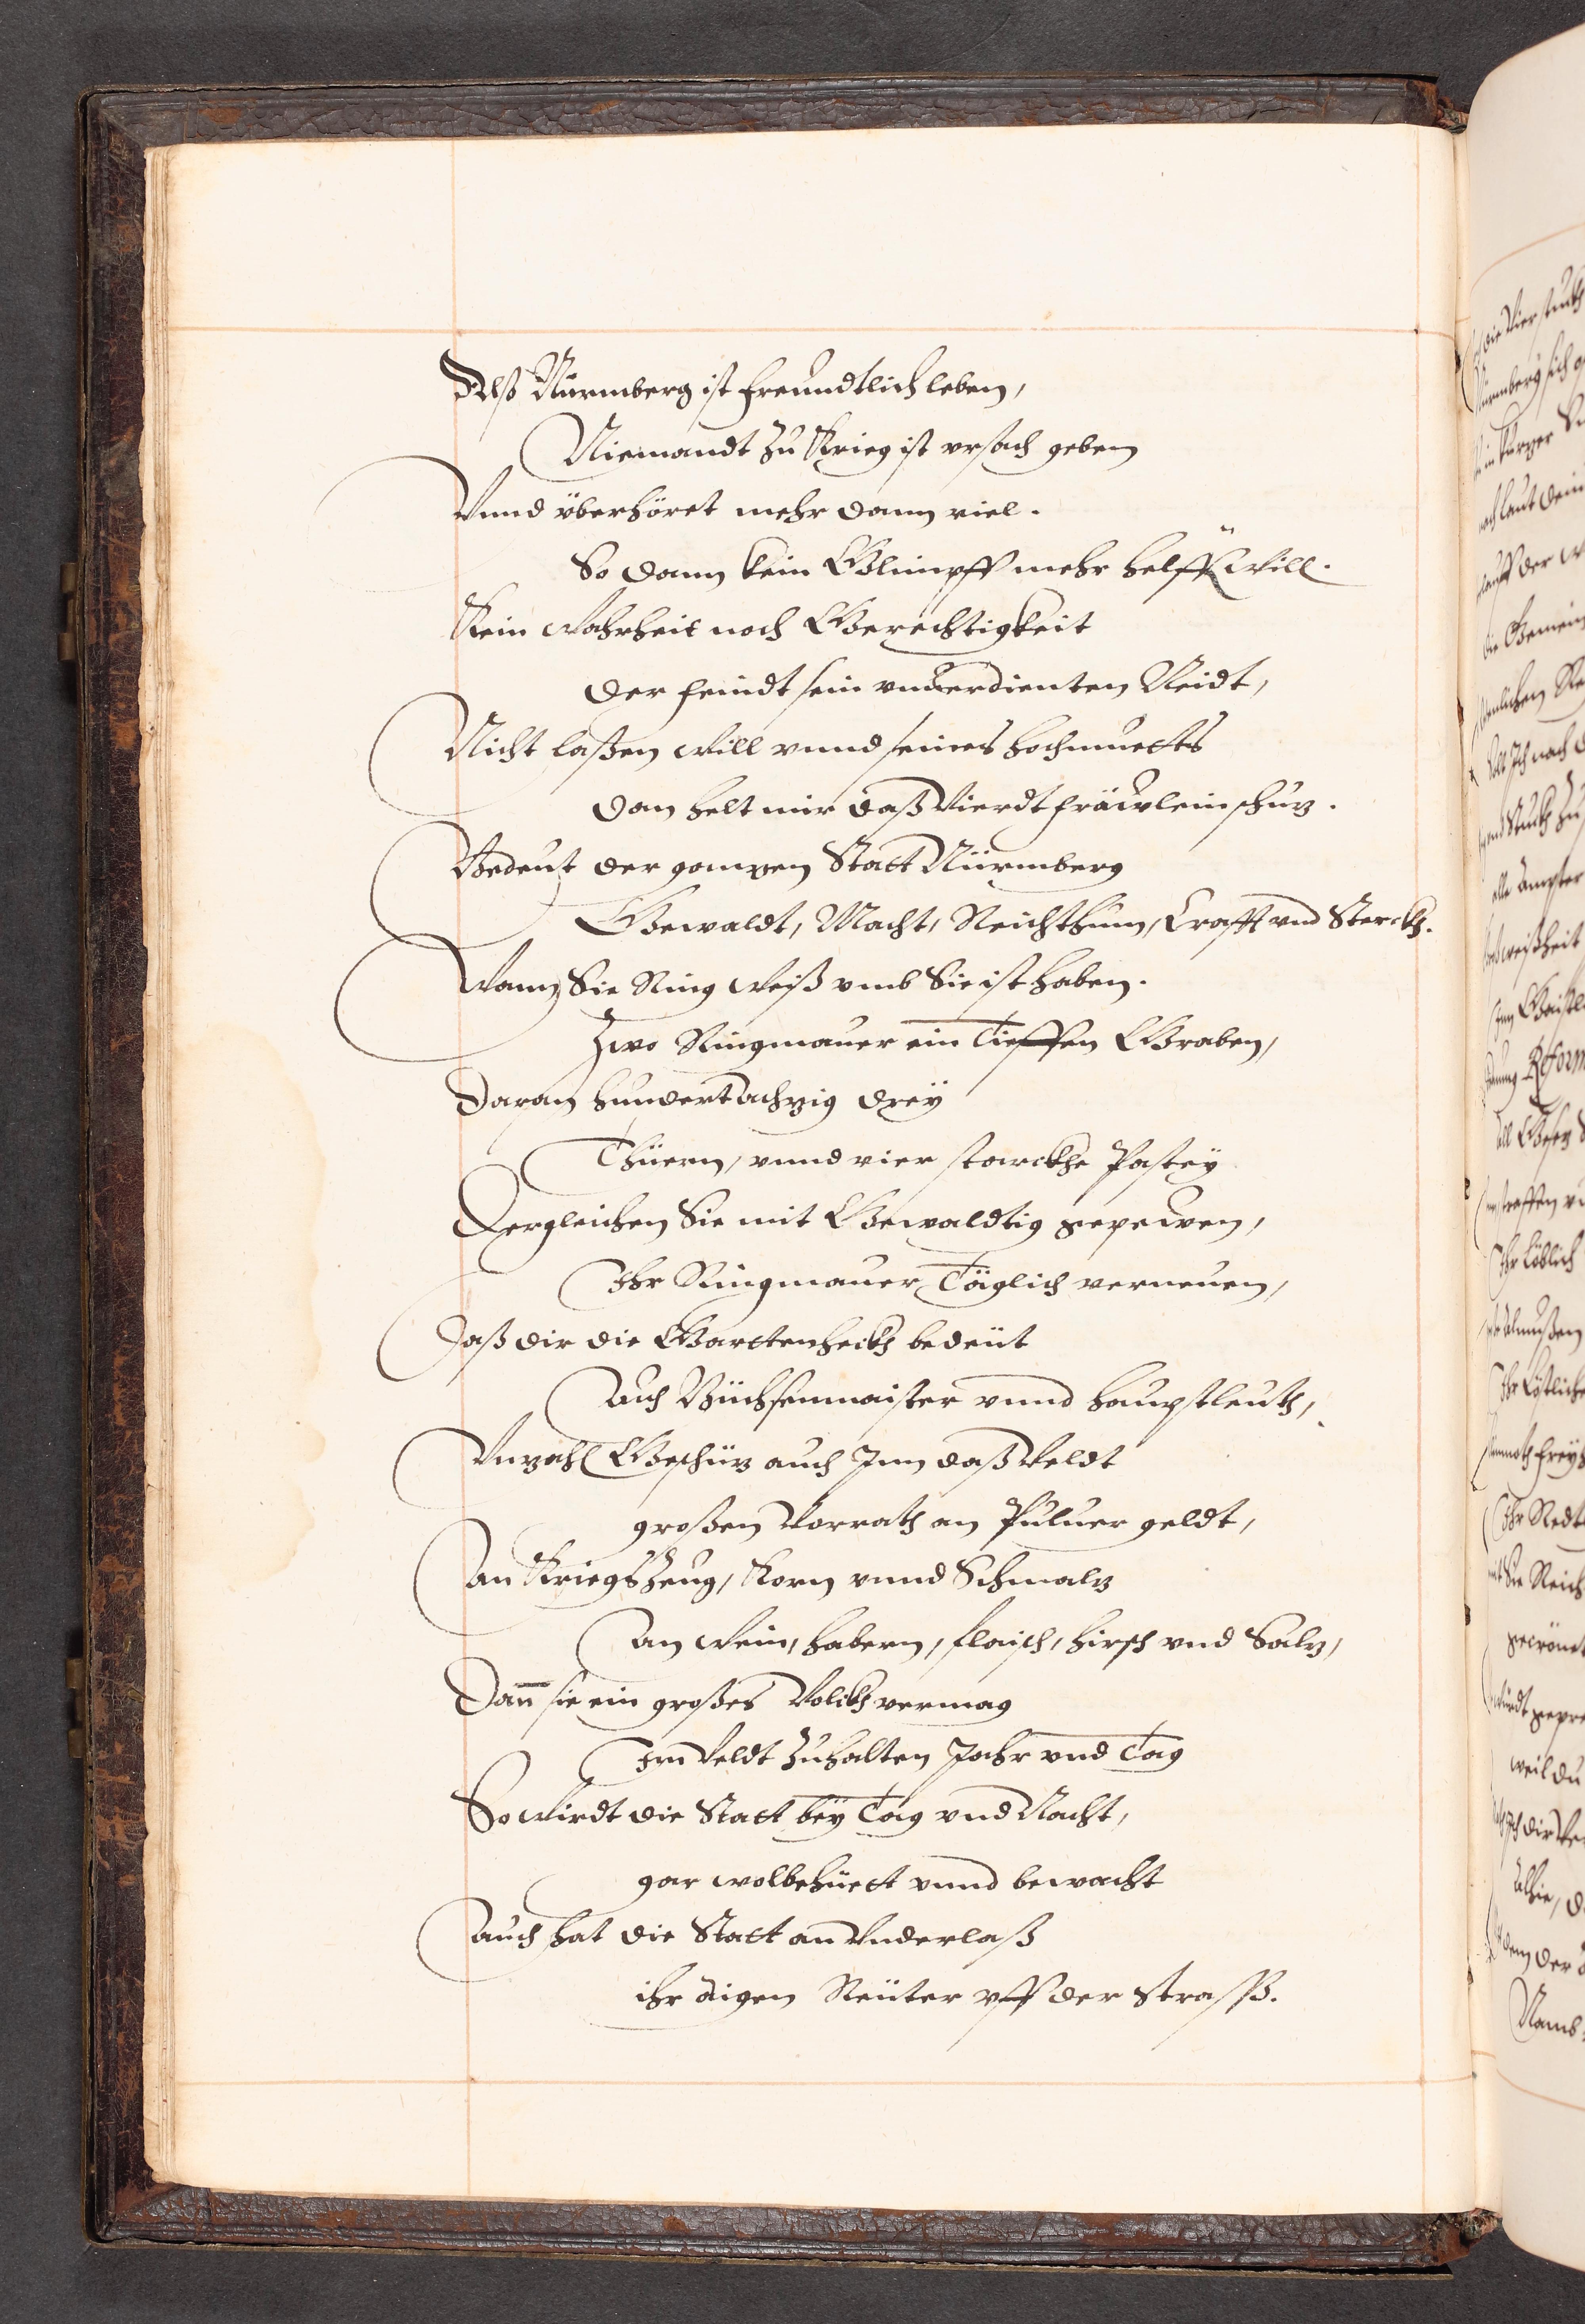 Alß Nürmberg ist freundtlich leben,
Niemandt zu Krieg ist vrsach geben
Vnnd vberhöret mehr dann viel.
So dann kein Glimpff mehr helffen will.
Kein Wahrheit noch Gerechtigkeit
der feindt sein vnuerdienten Neidt,
Nicht laßen will vnnd seines hochmuetts
dan helt mir daß Vierdt fräwlein schuz.
Bedeut der ganzen Statt Nürmberg
Gewaldt, Macht, Reichthum, Crafft vnd Sterckh.
Wann Sie Ring weiß vmb Sie ist haben.
Zwo Ringmauer ein Tieffen Graben,
Daran hundert achzig drey
Thüern, vnnd vier starckhe Pastey
Dergleichen Sie mit Gewaldtig gepewen,
Ihr Ringmauer Täglich verneuen,
Daß dir die Garttenheckh bedeüt
Auch Büchsenmaister vnnd hauptleuth,
Vnzahl Geschüz auch Inn daß Veldt
großen Vorrath an Puluer geldt,
An Kriegszeug, Korn vnnd Schmalz
An Wein, habern, flaisch, hirsch vnd Salz,
Dañ sie ein großes Volckh vermag
Im Veldt zuhalten Jahr vnd Tag
So Wirdt die Statt bey Tag vnd Nacht,
gar wolbehüett vnnd bewacht
Auch hat die Statt an Vnderlaß
ihr äigen Reüter vff der straß.